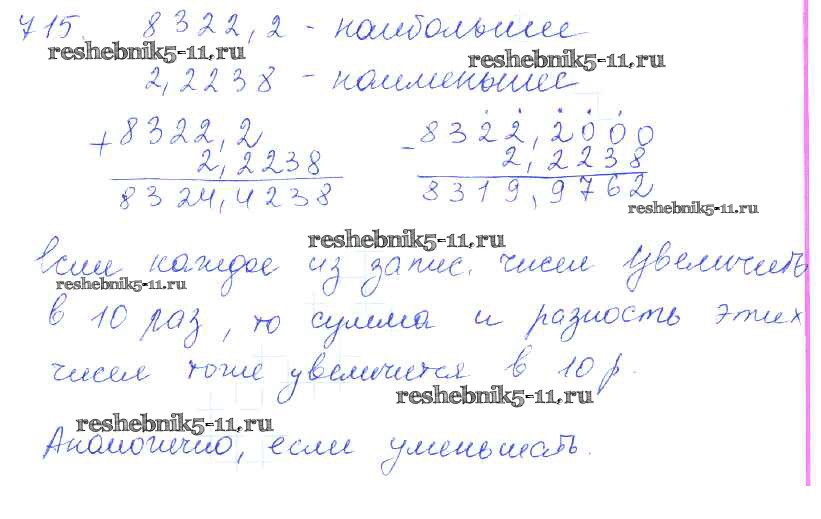 715. 8322,2 - наибольшее
reshebnik5-11.ru
reshebnik5-11.ru
2,2238 - наименьшее
+ 8322,2
2,2238
8324,4238
- 8322,2000
2,2238
8319,9762
reshebnik5-11.ru
reshebnik5-11.ru
Если каждое из запис. чисел увеличить
reshebnik5-11.ru
в 10 раз, то сумма и разность этих
чисел тоже увеличится в 10 р.
reshebnik5-11.ru
reshebnik5-11.ru
Аналогично, если уменьшать.